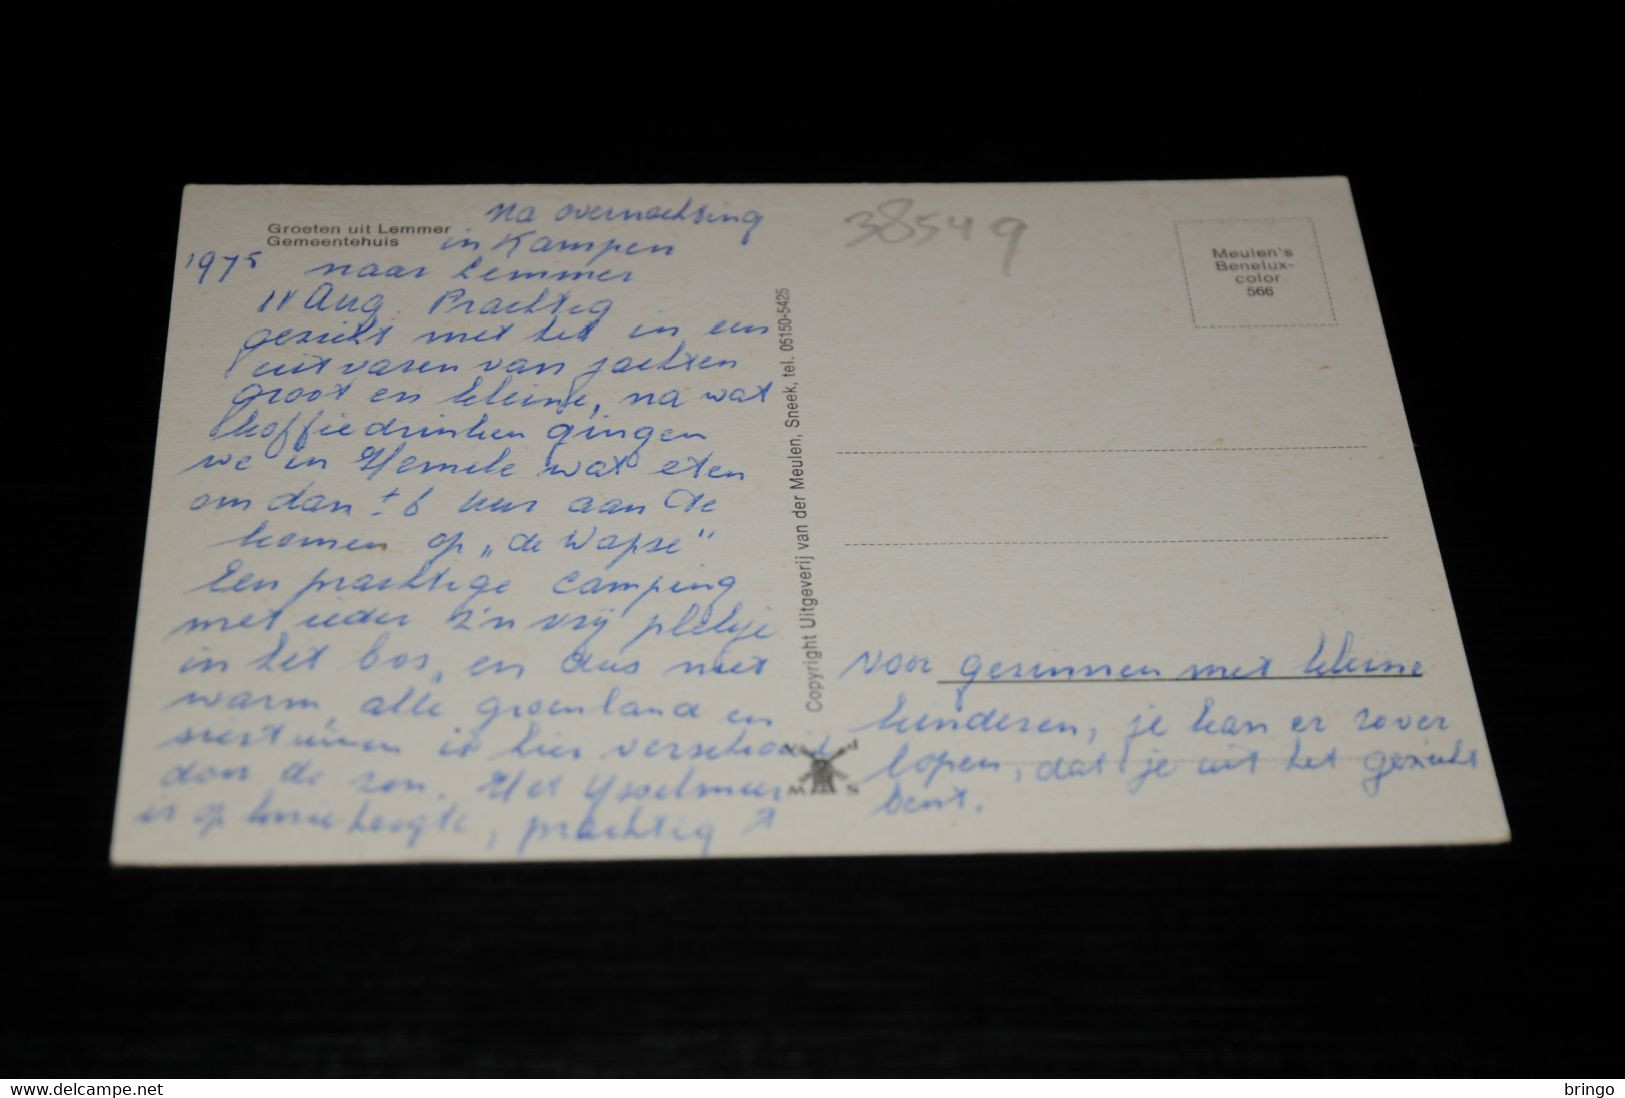 Groeten uit Lemmer
Gemeentehuis
Na overnachting
in Kampen
1975 naar Lemmer
Aug. Prachtig
gezicht met het in een
uitvaren van jachten
groot en kleine, na wat
koffiedrinken gingen
we in Hemele wat eten
om dan ± 6 uur aan te
komen op „de Wapse"
Een prachtige camping
met ieder z'n vrij plekje
in het bos, en dus niet
warm, alle groenland en
is hier verschroeid
door de zon. Het Ysselmeer
is op hoogte, prachtig
Copyright Uitgeverij van der Meulen, Sneek, tel. 05150-5425
38549
Meulen's
Benelux-
color
566
voor gezinnen met kleine
kinderen, je kan er zover
lopen, dat je uit het gezicht
bent.
V D
M S
www.delcampe.net
bringo